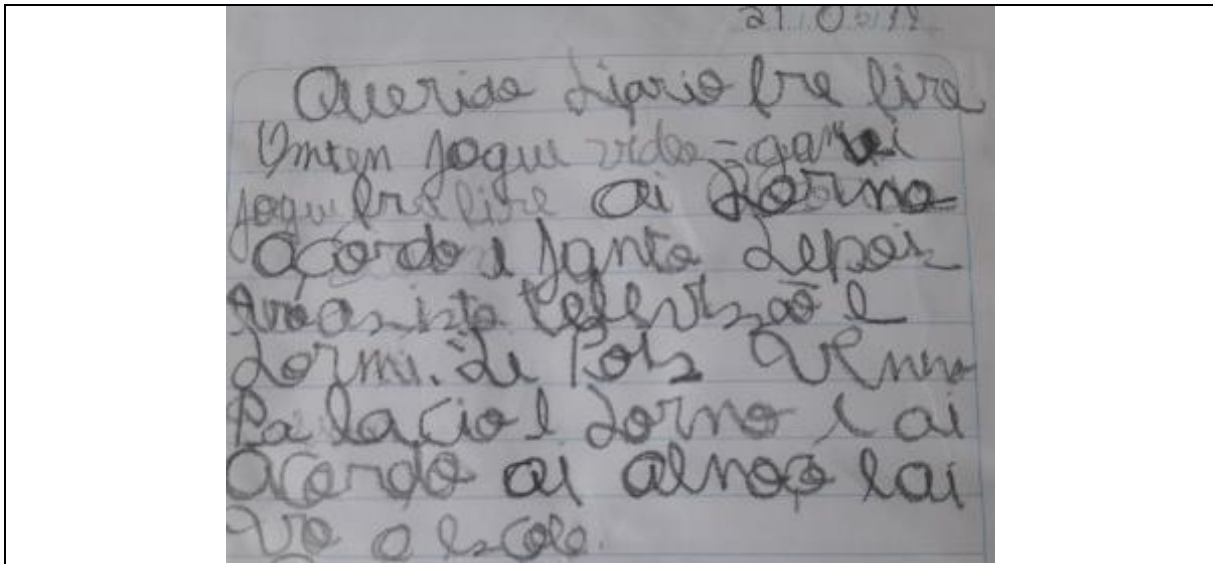 21 05 19
Querido diario fre fire
Omten jogue video-game i
jogu fre fire ai dormo
açordo i janto depois
asisto televizaõ e
dormi. de pois venno
Pa lacio e dormo i ai
acordo ai alnoço i ai
vo a escola.